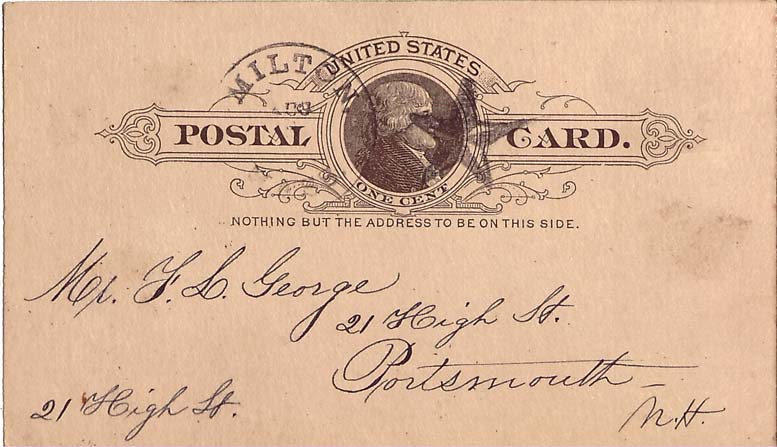 MILTON
AUG
UNITED STATES
POSTAL CARD.
ONE CENT
NOTHING BUT THE ADDRESS TO BE ON THIS SIDE.
Mr. F. L. George
21 High St.
Portsmouth
21 High St.
N.H.